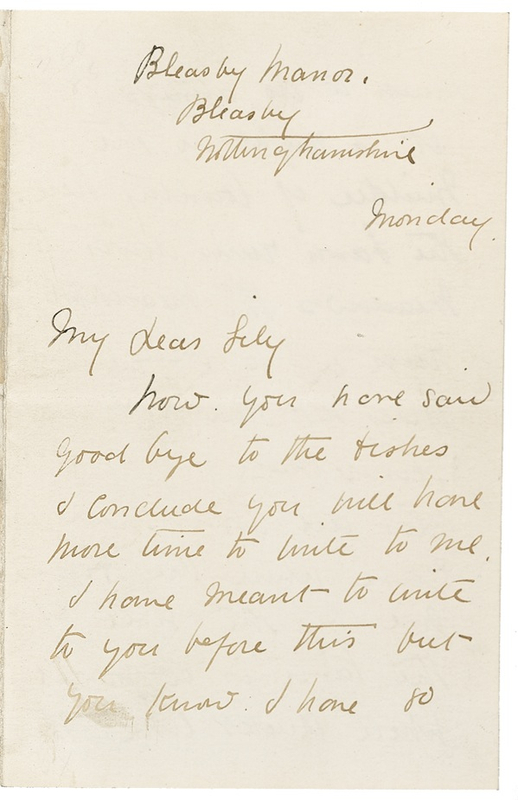 Bleasby Manor.
Bleasby
Nottinghamshire
Monday.
My dear Lily
Now. you have said
good bye to the dishes
I conclude you will have
more time to write to me.
I have meant to write
to you before this but
you know. I have so